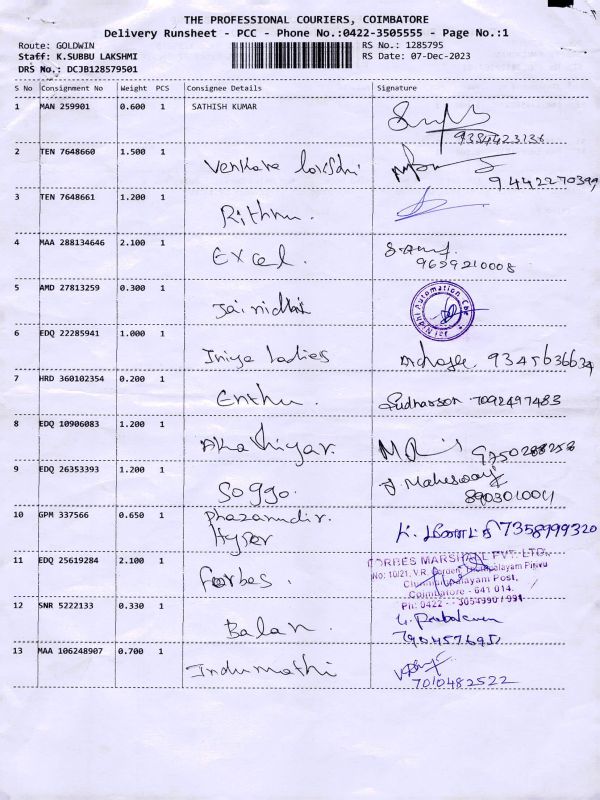 THE PROFESSIONAL COURIERS, COIMBATORE
Delivery Runsheet - PCC - Phone No.:0422-3505555 - Page No.:1
Route: GOLDWIN RS No.: 1285795
Staff: K.SUBBU LAKSHMI RS Date: 07-Dec-2023
DRS No.: DCJB128579501
S No Consignment No Weight PCS Consignee Details Signature
1 MAN 259901 0.600 1 SATHISH KUMAR
9384423136
2 TEN 7648660 1.500 1
9442270399
3 TEN 7648661 1.200 1 Rithnu.
4 MAA 288134646 2.100 1 Excel.
9659210008
5 AMD 27813259 0.300 1 Jainidhi
Jai Nidhi Automation Cbe
6 EDQ 22285941 1.000 1 Iniya ladies 9345636634
7 HRD 360102354 0.200 1 Enthu. Sudharson 7092497483
8 EDQ 10906083 1.200 1 Akathiyar. 9750288258
9 EDQ 26353393 1.200 1 Soggo. J. Maheswari
8903010011
10 GPM 337566 0.650 1 K. மீனாட்சி 7358999320
11 EDQ 25619284 2.100 1 Forbes.
FORBES MARSHALL PVT. LTD.
No: 10/21, V.R. Garden,
Chinniampalayam Post,
Coimbatore - 641 014.
Ph: 0422 -
12 SNR 5222133 0.330 1 Balan.
13 MAA 106248907 0.700 1 Indumathi
7010482522